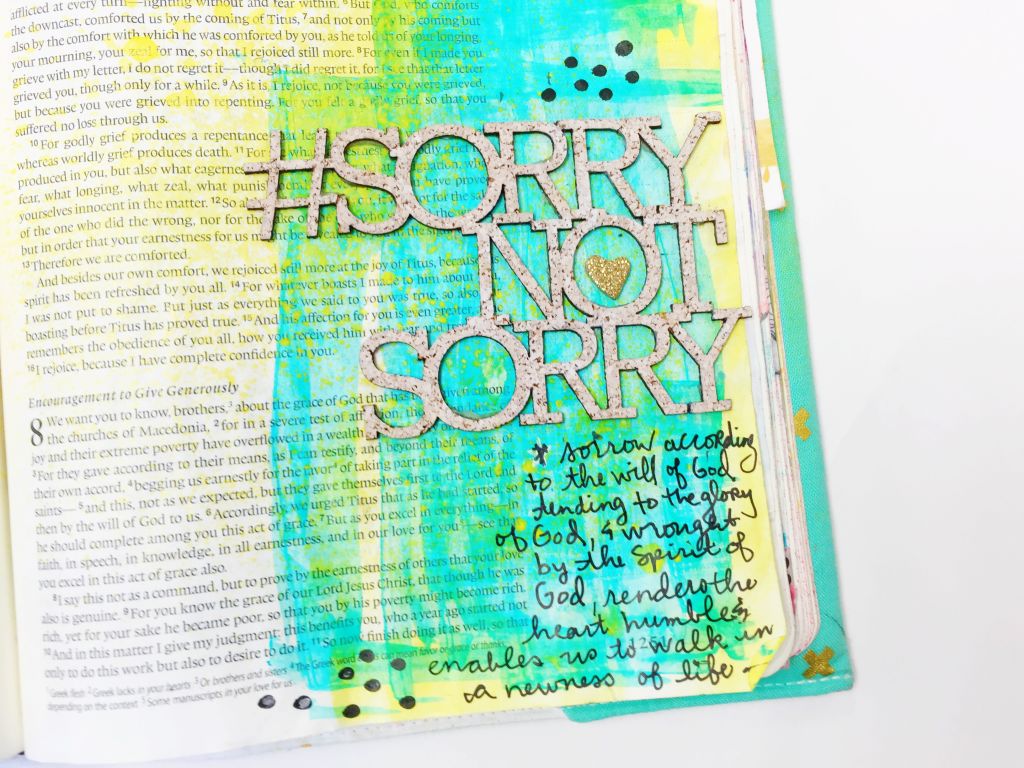 afflicted at every turn—fighting without and fear within. ⁶But God, who comforts
the downcast, comforted us by the coming of Titus, ⁷and not only by his coming but
also by the comfort with which he was comforted by you, as he told us of your longing,
your mourning, your zeal for me, so that I rejoiced still more. ⁸For even if I made you
grieve with my letter, I do not regret it—though I did regret it, for I see that that letter
grieved you, though only for a while. ⁹As it is, I rejoice, not because you were grieved,
but because you were grieved into repenting. For you felt a godly grief, so that you
suffered no loss through us.
¹⁰For godly grief produces a repentance that
whereas worldly grief produces death. ¹¹For
produced in you, but also what eagerness
fear, what longing, what zeal, what
yourselves innocent in the matter. ¹²So
of the one who did the wrong, nor for the sake of the one who
but in order that your earnestness for us might be
¹³Therefore we are comforted.
And besides our own comfort, we rejoiced still more at the joy of Titus, because
spirit has been refreshed by you all. ¹⁴For whatever boasts I made to him about you,
I was not put to shame. But just as everything we said to you was true, so also
boasting before Titus has proved true. ¹⁵And his affection for you is even greater,
remembers the obedience of you all, how you received him with fear and
¹⁶I rejoice, because I have complete confidence in you.
#SORRY
NOT
SORRY
Encouragement to Give Generously
8 We want you to know, brothers,³ about the grace of God that has been given among
the churches of Macedonia, ²for in a severe test of affliction, the
joy and their extreme poverty have overflowed in a wealth
³For they gave according to their means, as I can testify, and beyond their means, of
their own accord, ⁴begging us earnestly for the favor⁴ of taking part in the relief of the
saints— ⁵and this, not as we expected, but they gave themselves first to the Lord and
then by the will of God to us. ⁶Accordingly, we urged Titus that as he had started, so
he should complete among you this act of grace. ⁷But as you excel in everything—in
faith, in speech, in knowledge, in all earnestness, and in our love for you⁵—see that
you excel in this act of grace also.
⁸I say this not as a command, but to prove by the earnestness of others that your love
also is genuine. ⁹For you know the grace of our Lord Jesus Christ, that though he was
rich, yet for your sake he became poor, so that you by his poverty might become rich.
¹⁰And in this matter I give my judgment: this benefits you, who a year ago started not
only to do this work but also to desire to do it. ¹¹So now finish doing it as well, so that
¹Greek flesh ²Greek lacks in your hearts ³Or brothers and sisters ⁴The Greek word charis can mean favor or grace or thanks,
depending on the context ⁵Some manuscripts in your love for us
* sorrow according
to the will of God
tending to the glory
of God, & wrought
by the Spirit of
God, renders the
heart humble &
enables us to walk in
a newness of life -